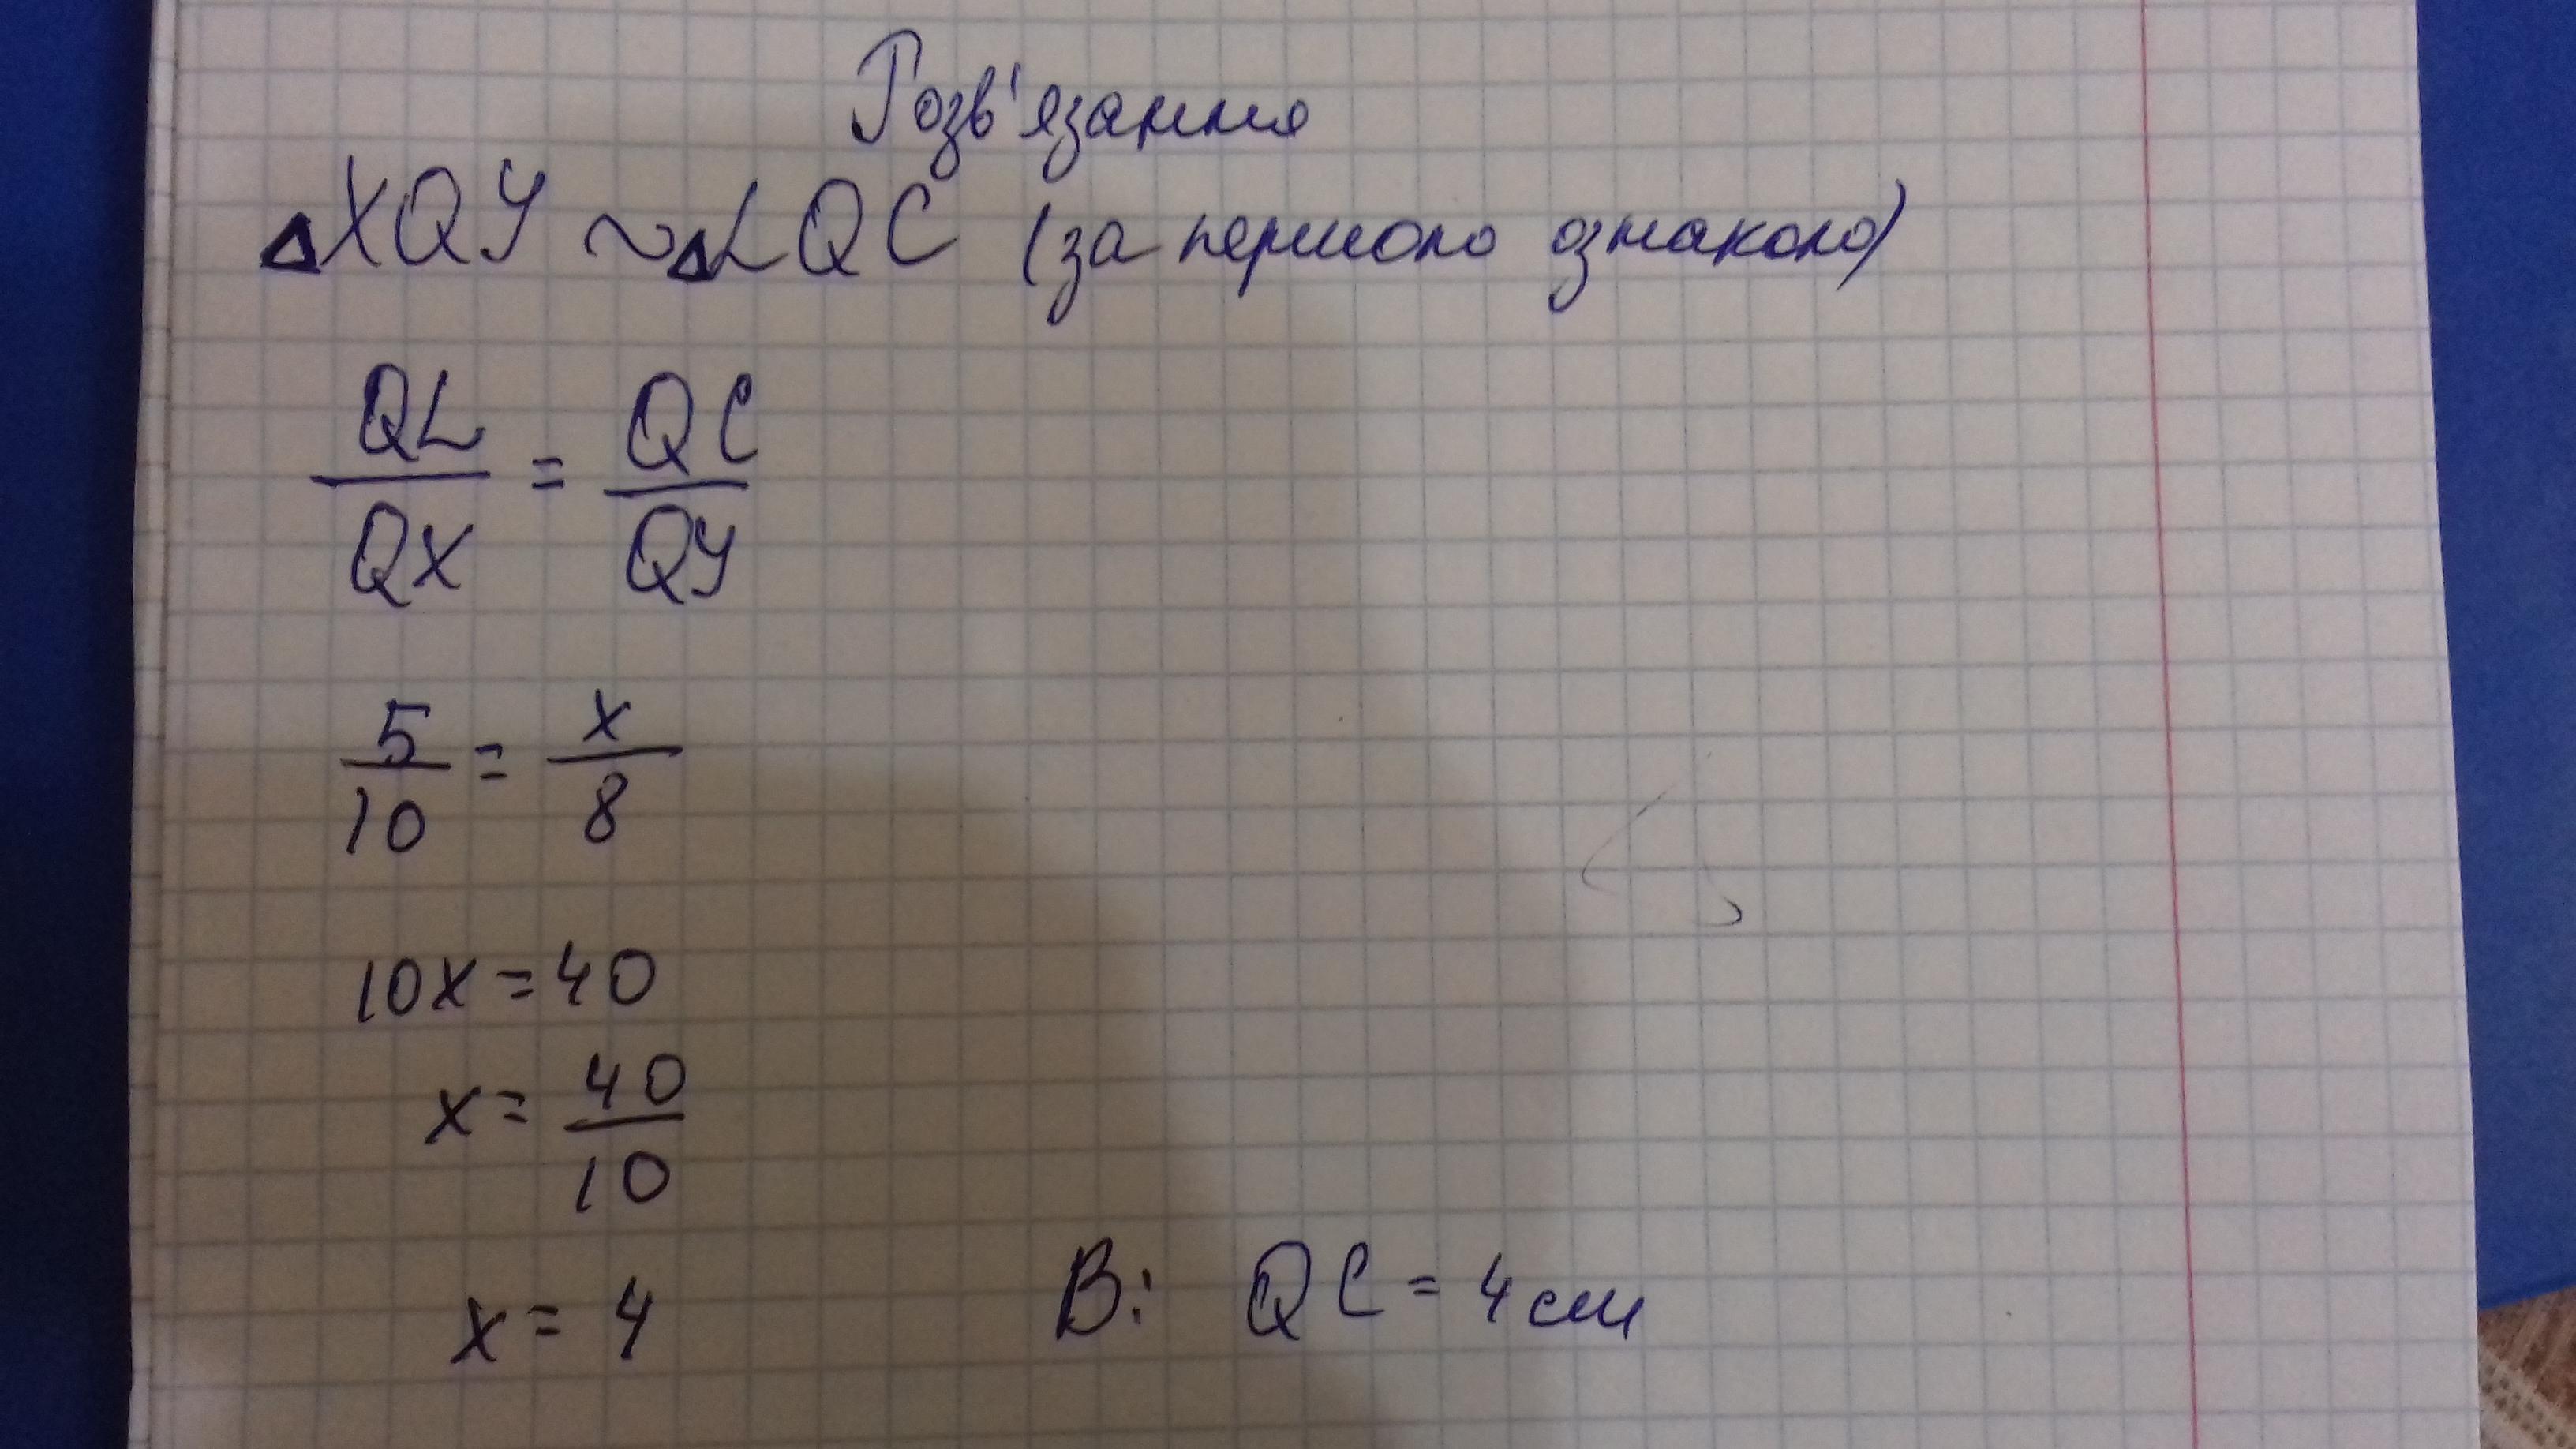 Розв'язання
△XQY ~ △LQC (за першою ознакою)
QL/QX = QC/QY
5/10 = x/8
10x = 40
x = 40/10
x = 4
В: QC = 4 см